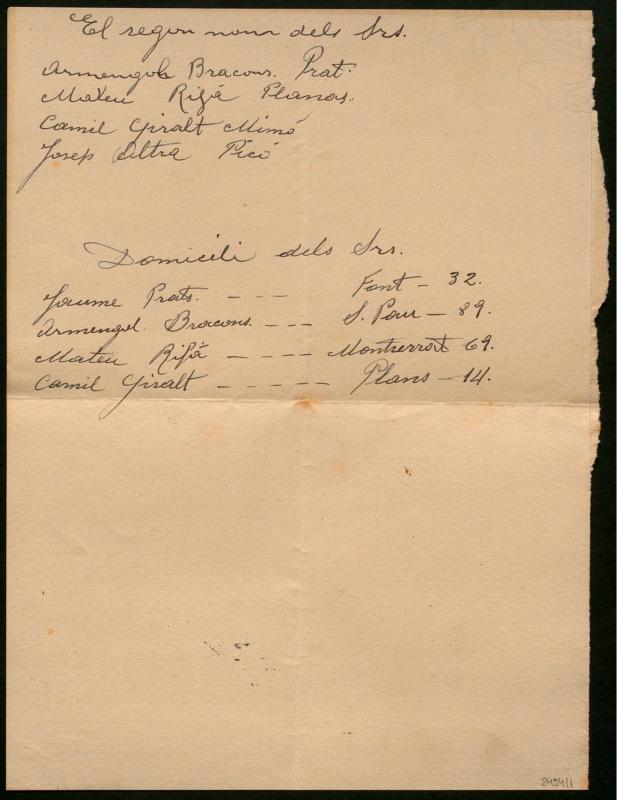 El segon nom dels Srs.
Armengol Bracons. Prat.
Mateu Rifá Planas.
Camil Giralt Mimó
Josep Altra Picó
Domicili dels Srs.
Jaume Prats. - - - Font - 32.
Armengol. Bracons. - - - S. Pau - 89.
Mateu Rifá - - - - Montserrat 69.
Camil Giralt - - - - - Plans - 14.